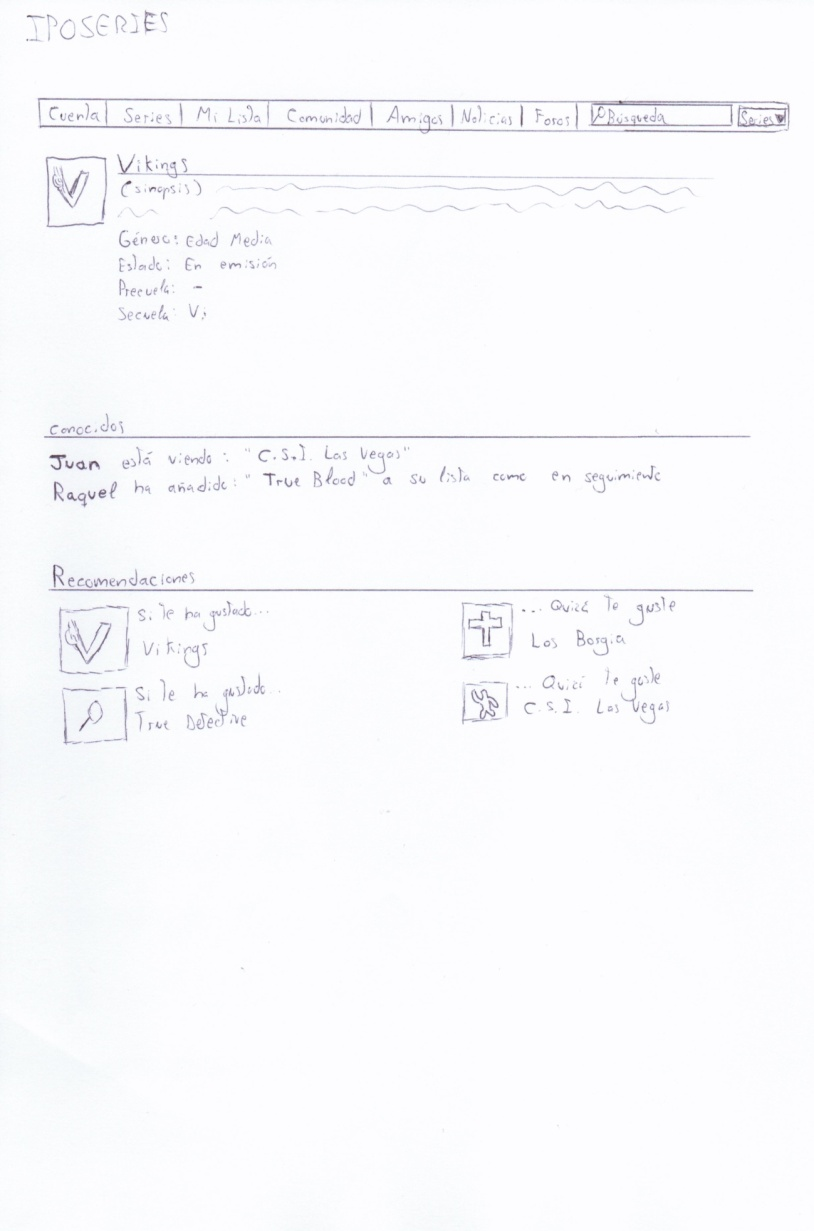 IPOSERIES
Cuenta Series Mi Lista Comunidad Amigos Noticias Foros Búsqueda Series
Vikings
(sinopsis)
Género: Edad Media
Estado: En emisión
Precuela: -
Secuela:
conocidos
Juan está viendo: "C.S.I. Las Vegas"
Raquel ha añadido: "True Blood" a su lista como en seguimiento
Recomendaciones
Si te ha gustado... ... Quizá te guste
Vikings Los Borgia
Si te ha gustado... ... Quizá te guste
True Detective C.S.I. Las Vegas